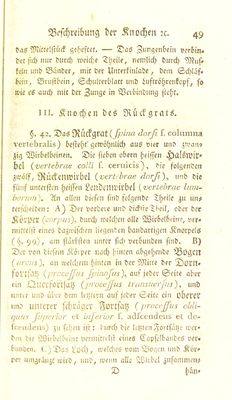 Beschreibung der Knochen ꝛc. 49
das Mittelstück geheftet. — Das Zungenbein verbin-
det sich nur durch weiche Theile, nemlich durch Mus-
keln und Bänder, mit der Unterkinlade, dem Schläf-
bein, Brustbein, Schulterblatt und Luftröhrenkopf, so
wie es auch mit der Zunge in Verbindung steht.
III. Knochen des Rückgrats.
§. 42. Das Rückgrat (spina dorsi s. columna
vertebralis) besteht gewöhnlich aus vier und zwan-
zig Wirbelbeinen. Die sieben obern heissen Halswir-
bel (vertebrae colli s. cervicis), die folgenden
zwölf, Rückenwirbel (vertebrae dorsi), und die
fünf untersten heissen Lendenwirbel (vertebrae lum-
borum). An allen diesen sind folgende Theile zu un-
terscheiden: A) Der vordere und dickste Theil, oder der
Körper (corpus), durch welchen alle Wirbelbeine, ver-
mittelst eines dazwischen liegenden bandartigen Knorpels
(§. 99), am stärksten unter sich verbunden sind. B)
Der von diesem Körper nach hinten abgehende Bogen
(arcus), an welchem hinten in der Mitte der Dorn-
fortsatz (processus spinosus), auf jeder Seite aber
ein Querfortsatz (processus transversus), und
unter und über dem letztern auf jeder Seite ein oberer
und unterer schräger Fortsatz (processus obli-
quus superior et inferior s. adscendens et de-
scendens) zu sehen ist; durch die letzten Fortsätze wer-
den die Wirbelbeine vermittelst eines Capselbandes ver-
bunden. C) Das Loch, welches vom Bogen und Kör-
per umgränzt wird, und, wenn alle Wirbel zusammen
D hän-